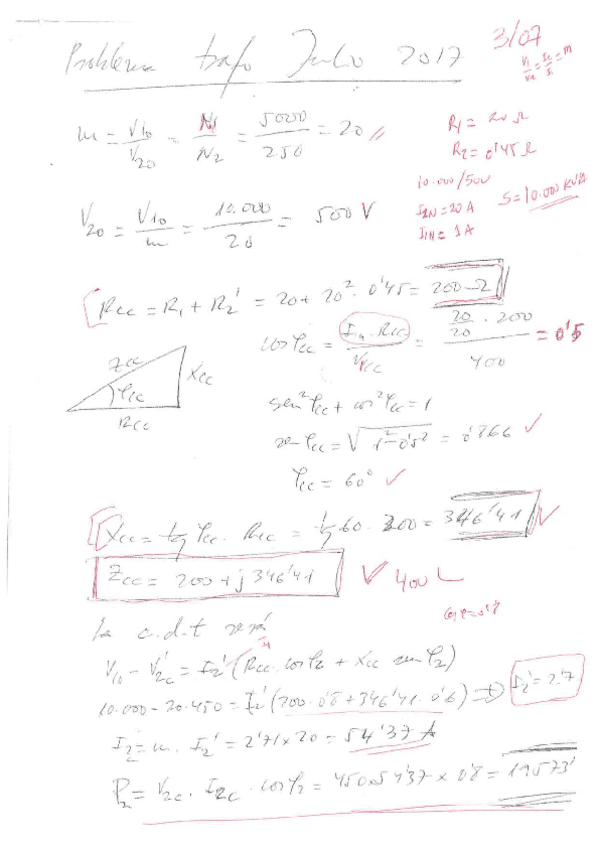 Problema trafo Julio 2017
3/07
V1/V2 = I2/I1 = m
m = V10/V20 = N1/N2 = 5000/250 = 20
R1 = 20 Ω
R2 = 0'45 Ω
10.000/500
S = 10.000 KVA
I2N = 20 A
I1N = 1 A
V20 = V10/m = 10.000/20 = 500 V
Rcc = R1 + R2' = 20 + 20² · 0'45 = 200 Ω
cos φcc = In · Rcc / Vcc = 20/20 · 200 / 400 = 0'5
Zcc Xcc
φcc
Rcc
sen² φcc + cos² φcc = 1
sen φcc = √1² - 0'5² = 0'866
φcc = 60°
Xcc = tg φcc · Rcc = tg 60 · 200 = 346'41
Zcc = 200 + j 346'41
400
La c.d.t será
cos φ = 0'8
V10 - V2c' = I2' (Rcc · cos φ2 + Xcc sen φ2)
10.000 - 20·450 = I2' (200 · 0'8 + 346'41 · 0'6) ⇒ I2' = 2'7
I2 = m · I2' = 2'71 x 20 = 54'37 A
P2 = V2c · I2c · cos φ2 = 450·54'37 x 0'8 = 19573'